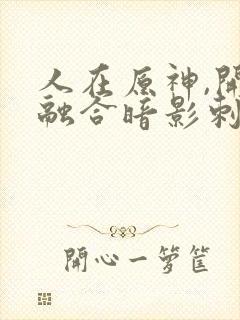 人在原神,開
融合暗影刺
開心一籮筐